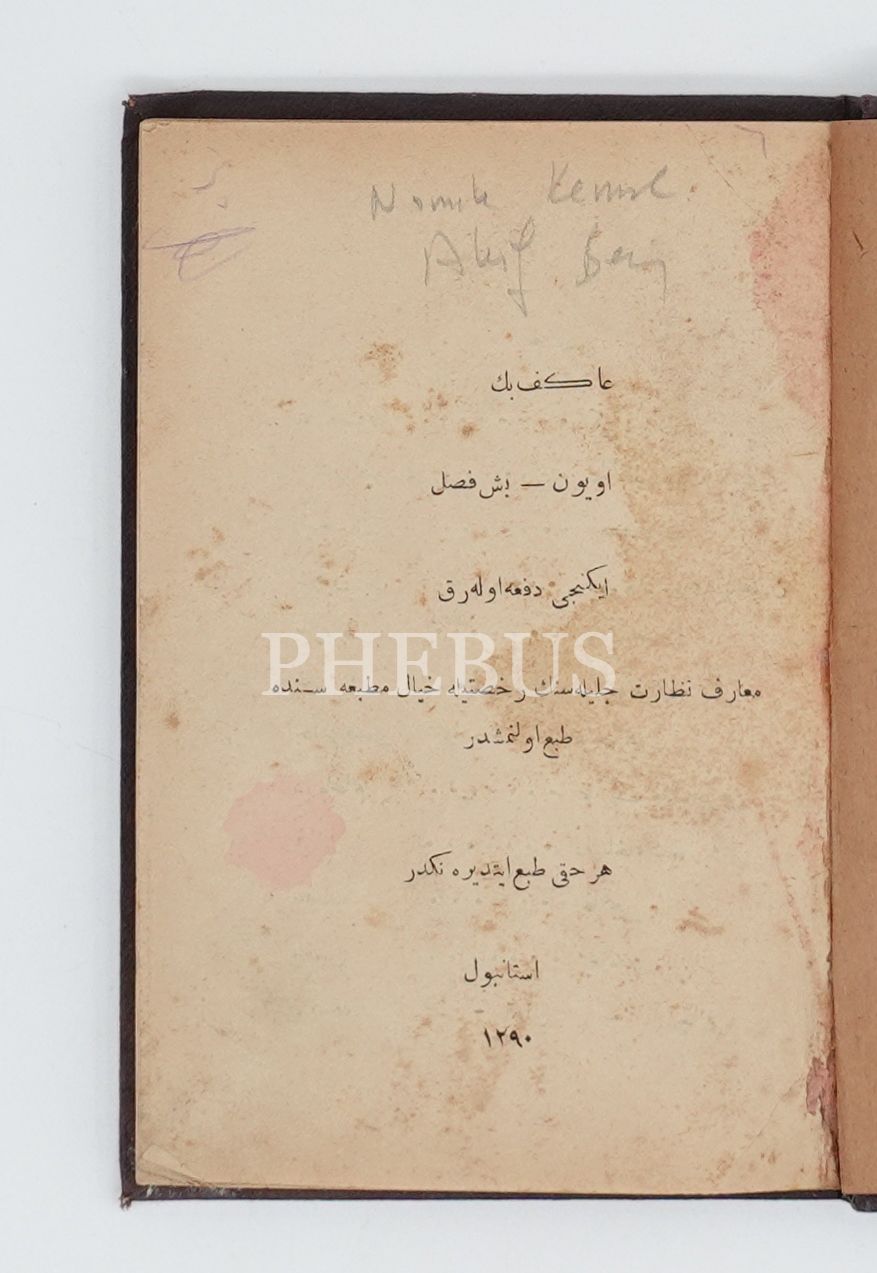 Namık Kemal
Akif Bey
عاكف بك
اويون — بش فصل
ايكنجى دفعه اوله رق
PHEBUS
معارف نظارت جليله سنك رخصتيله خيال مطبعه سنده
طبع اولنمشدر
هر حقى طبع ايتديره نكدر
استانبول
١٢٩٠